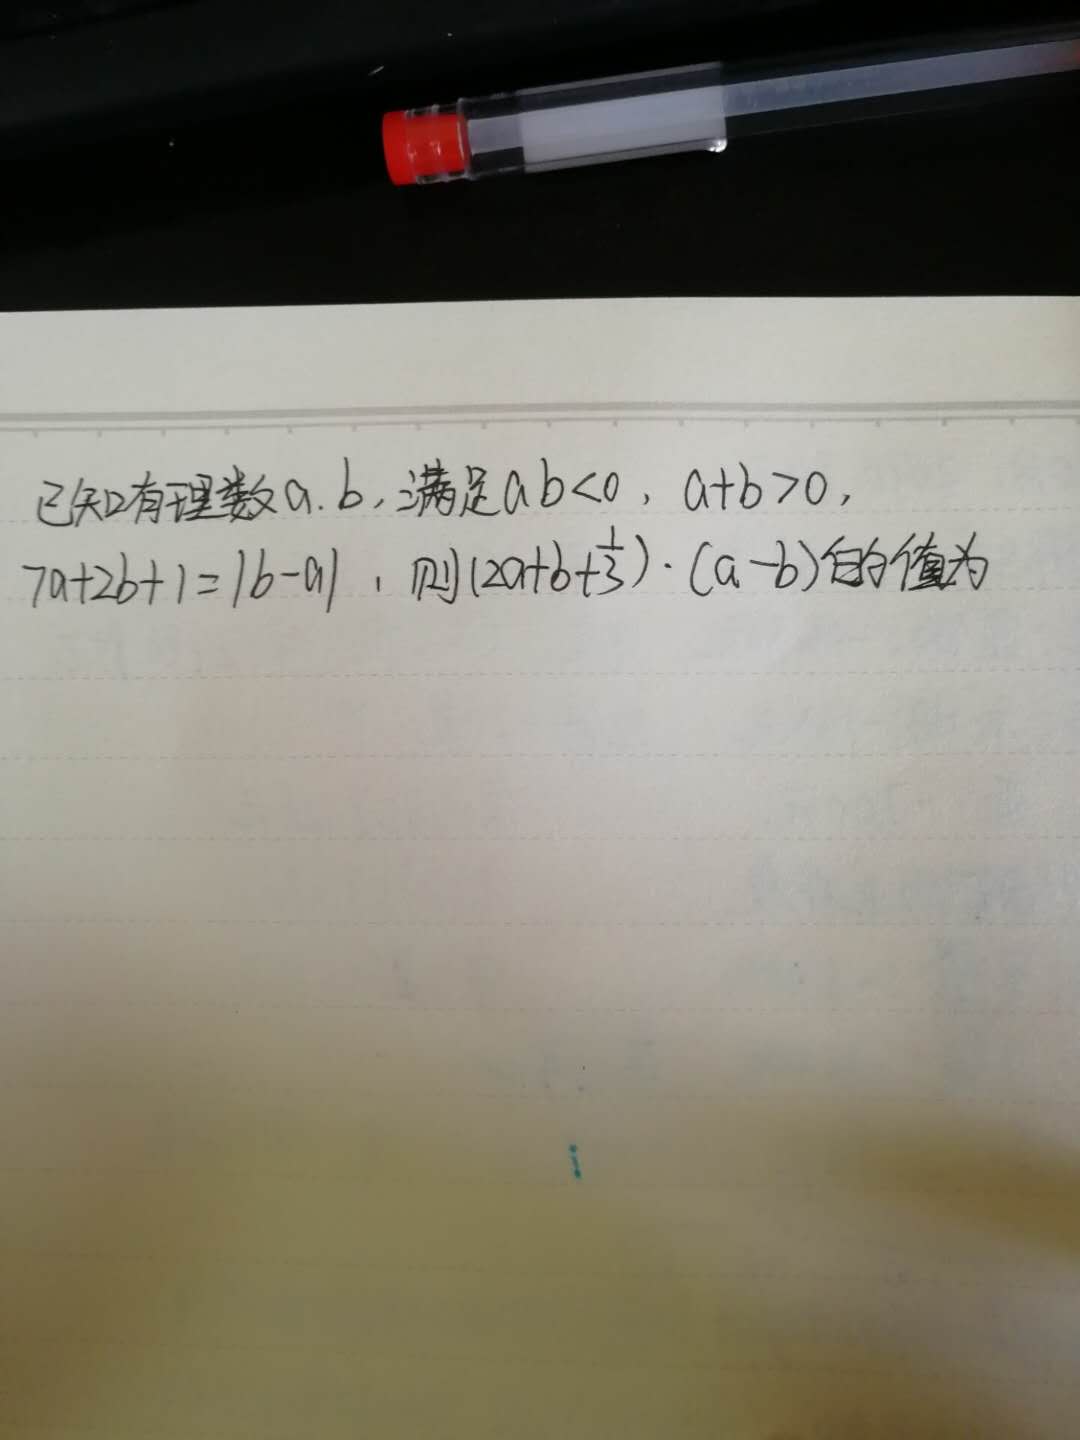 已知有理数a.b,满足ab<0,a+b>0,
7a+2b+1=|b-a|,则(2a+b+1/3)·(a-b)的值为